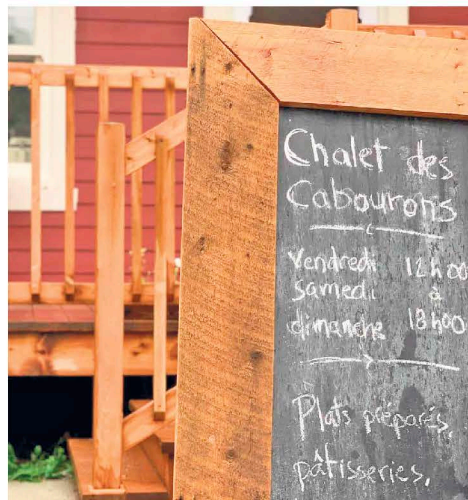 Chalet des
Cabourons
Vendredi 12h00
samedi à
dimanche 18h00
Plats préparés,
pâtisseries,